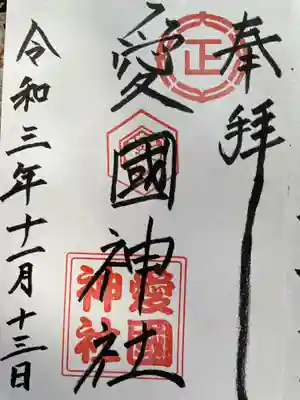 奉拝
愛國神社
令和三年十一月十三日
正
愛國
神社